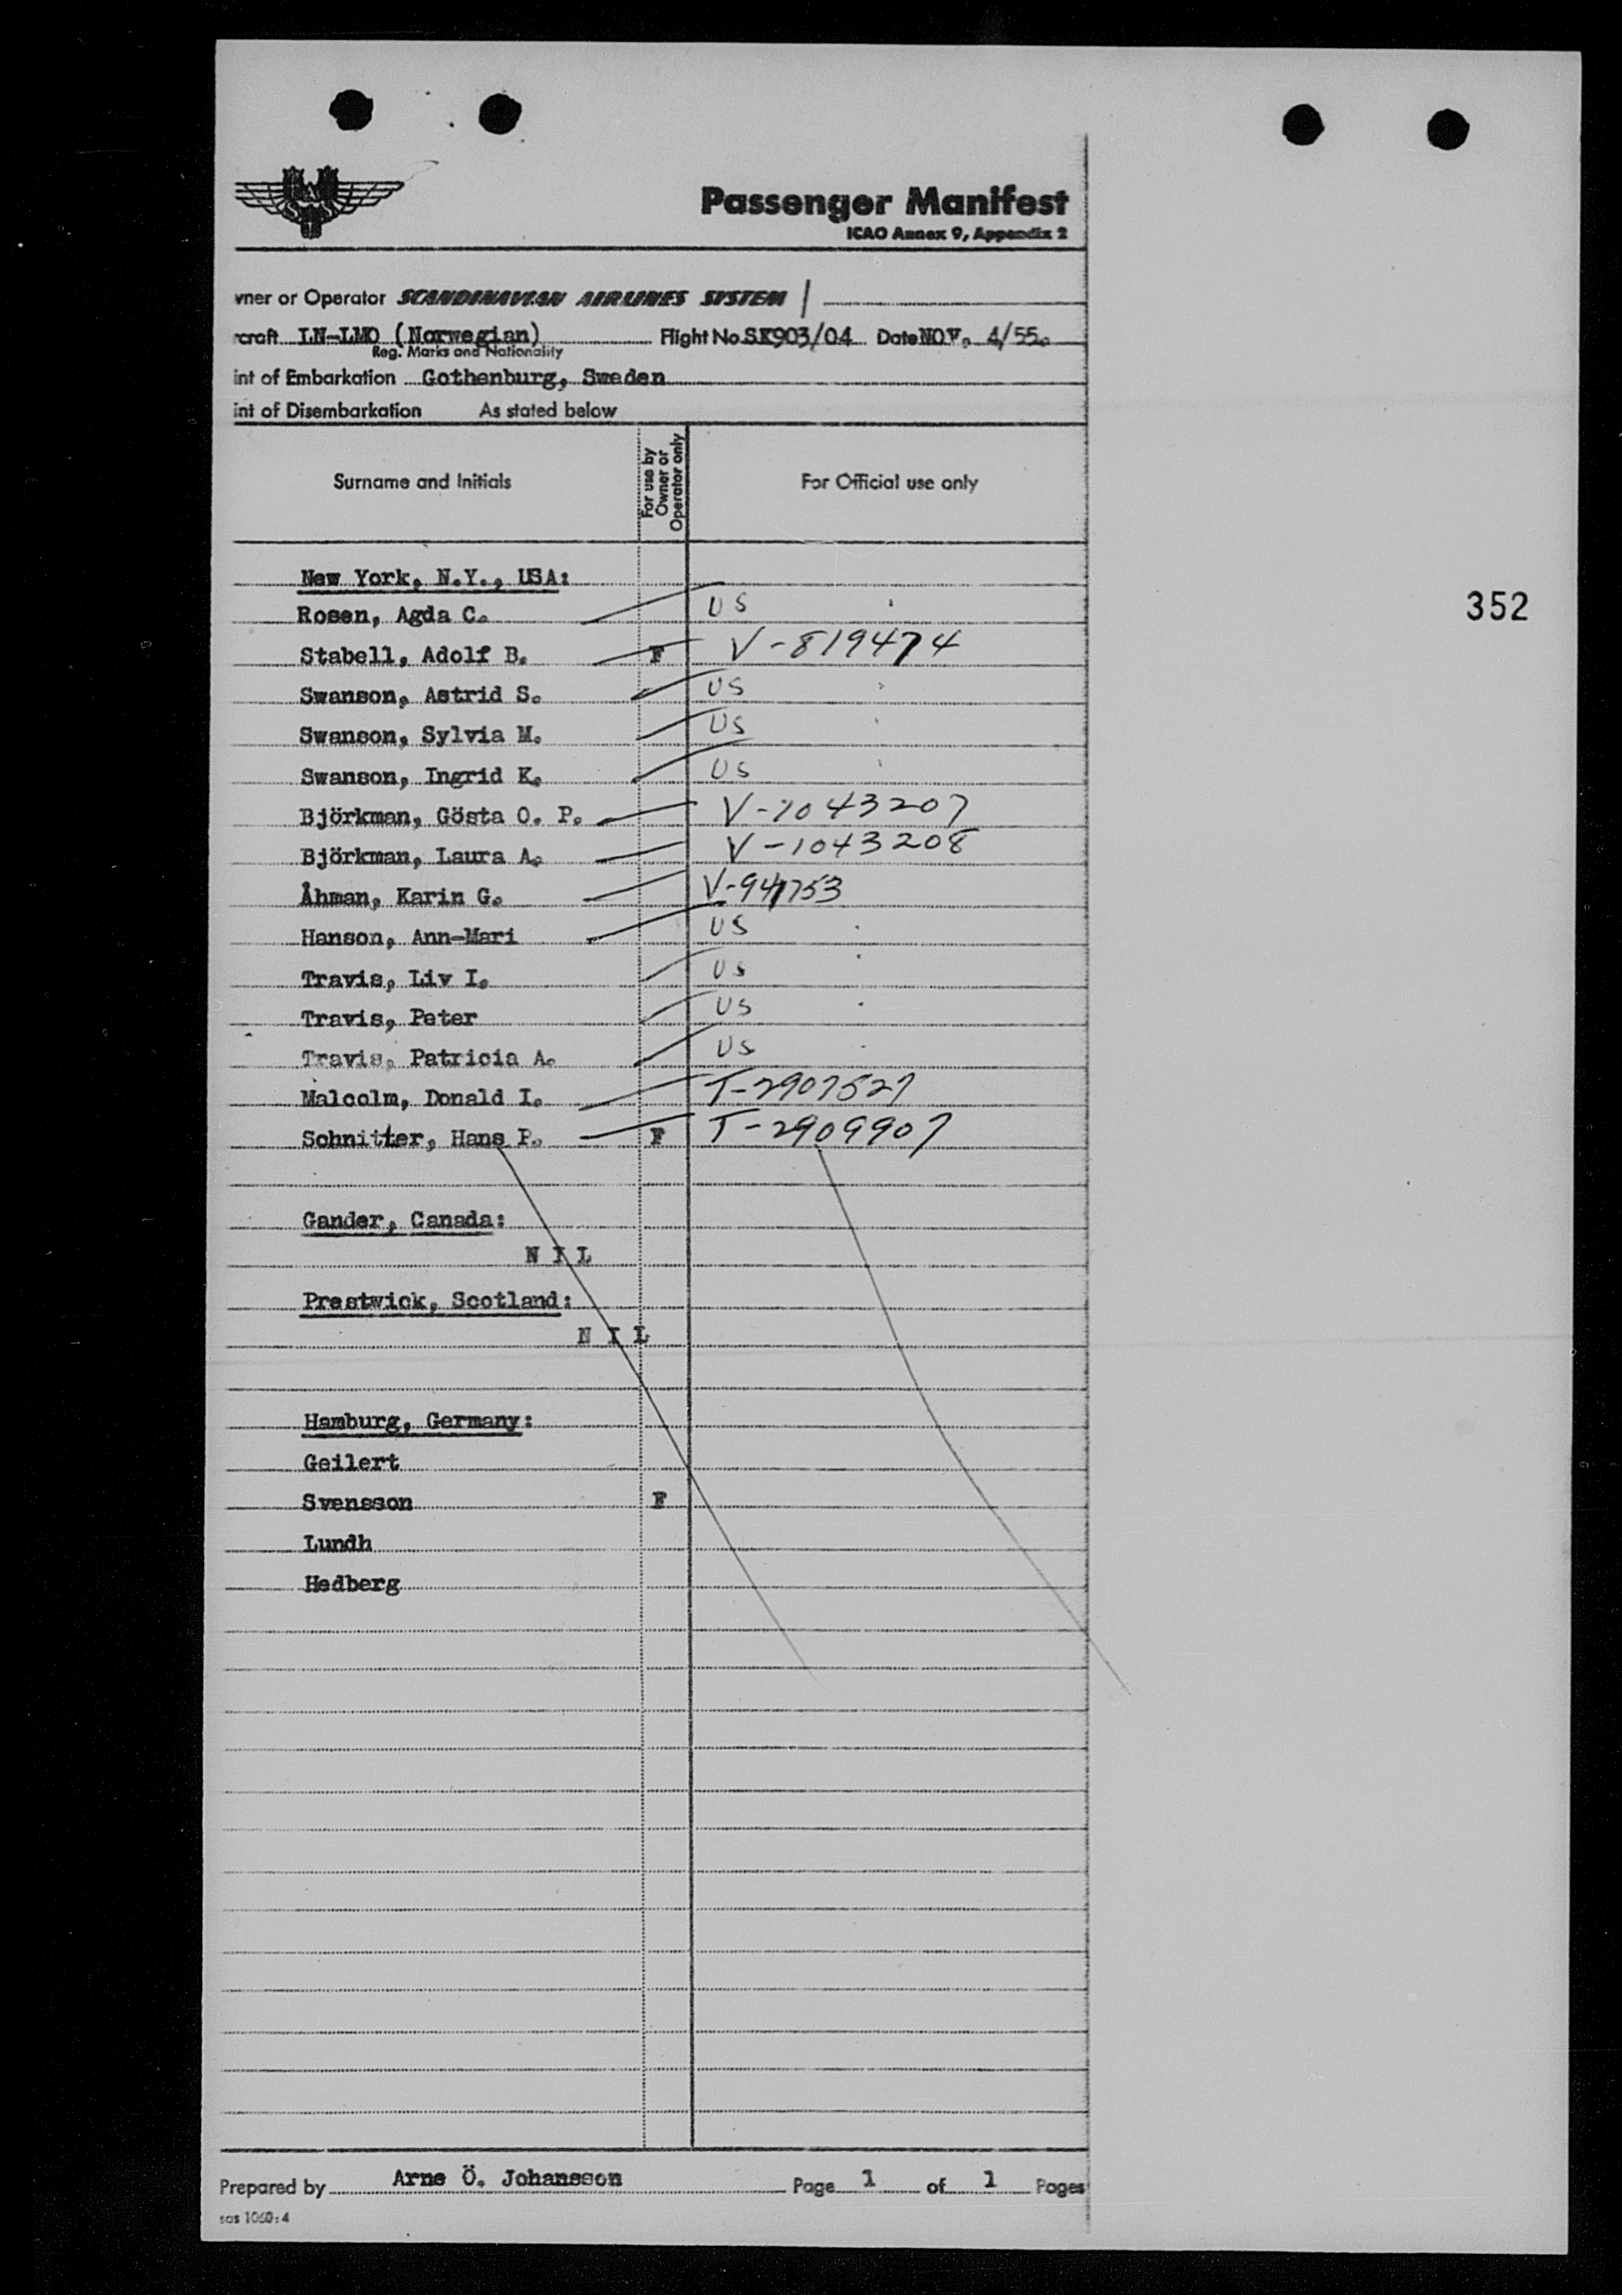 SAS
Passenger Manifest
ICAO Annex 9, Appendix 2
wner or Operator SCANDINAVIAN AIRLINES SYSTEM
rcraft LN-LMO (Norwegian) Flight No. SK903/04 Date NOV. 4/55.
Reg. Marks and Nationality
int of Embarkation Gothenburg, Sweden
int of Disembarkation As stated below
Surname and Initials For use by Owner or Operator only For Official use only
New York, N.Y., USA:
352
Rosen, Agda C. US
Stabell, Adolf B. F V-819474
Swanson, Astrid S. US
Swanson, Sylvia M. US
Swanson, Ingrid K. US
Björkman, Gösta O. P. V-1043207
Björkman, Laura A. V-1043208
Åhman, Karin G. V-941753
Hanson, Ann-Mari US
Travis, Liv I. US
Travis, Peter US
Travis, Patricia A. US
Malcolm, Donald I. T-2907527
Schnitter, Hans P. F T-2909907
Gander, Canada:
N I L
Prestwick, Scotland:
N I L
Hamburg, Germany:
Geilert
Svensson F
Lundh
Hedberg
Prepared by Arne Ö. Johansson Page 1 of 1 Pages
sas 1060:4